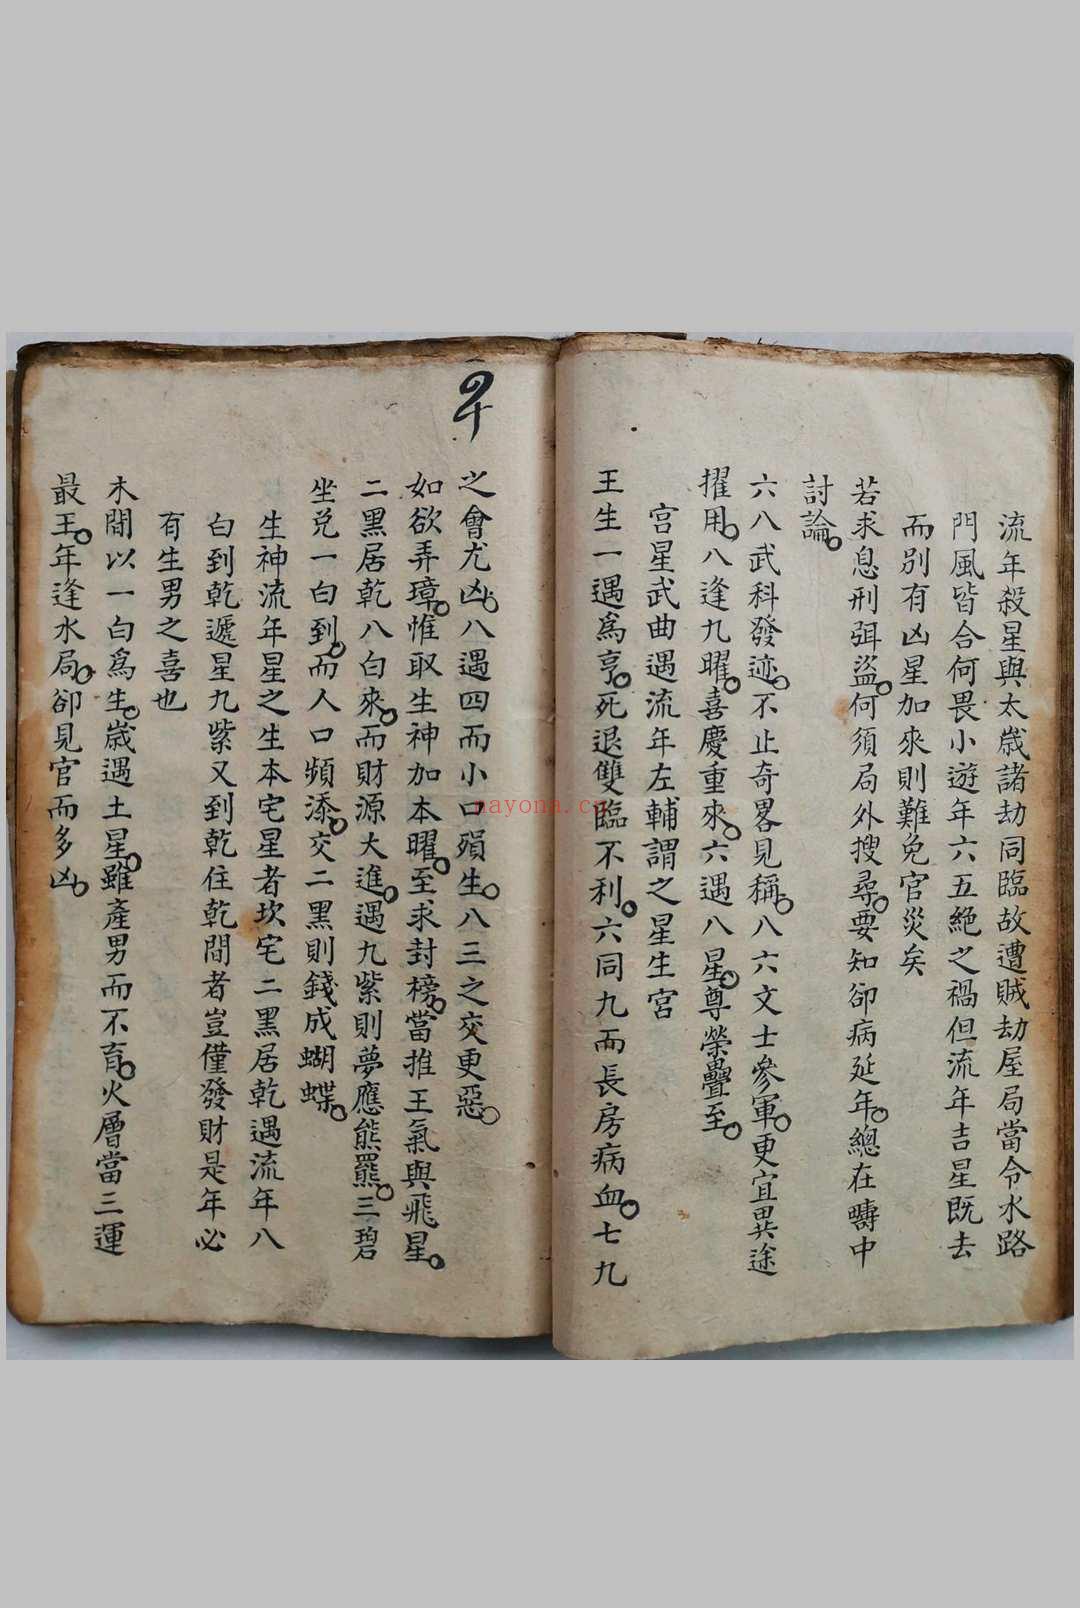 流年殺星與太歲諸劫同臨故遭賊劫屋局當令水路
門風皆合何畏小遊年六五絕之禍但流年吉星既去
而別有凶星加來則難免官災矣
若求息刑弭盜。何須局外搜尋。要知卻病延年。總在疇中
討論。
六八武科發迹。不止奇畧見稱。八六文士參軍。更宜異途
擢用。八逢九曜。喜慶重來。六遇八星。尊榮疊至。
宮星武曲遇流年左輔謂之星生宮
王生一遇爲亨。死退雙臨不利。六同九而長房病血。七九
之會尤凶。八遇四而小口殞生。八三之交更惡。
如欲弄璋。惟取生神加本曜。至求封榜。當推王氣與飛星。
二黑居乾八白來。而財源大進。遇九紫則夢應熊羆。三碧
坐兌一白到。而人口頻添。交二黑則錢成蝴蝶。
生神流年星之生本宅星者坎宅二黑居乾遇流年八
白到乾遞星九紫又到乾住乾間者豈僅發財是年必
有生男之喜也
木間以一白爲生。歲遇土星。雖產男而不育。火層當三運
最王。年逢水局。卻見官而多凶。
nayona.cn